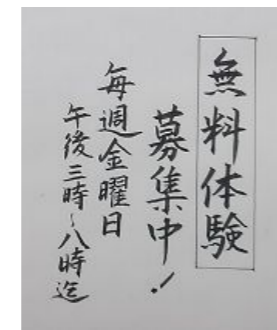 無料体験
募集中!
毎週金曜日
午後三時~八時迄